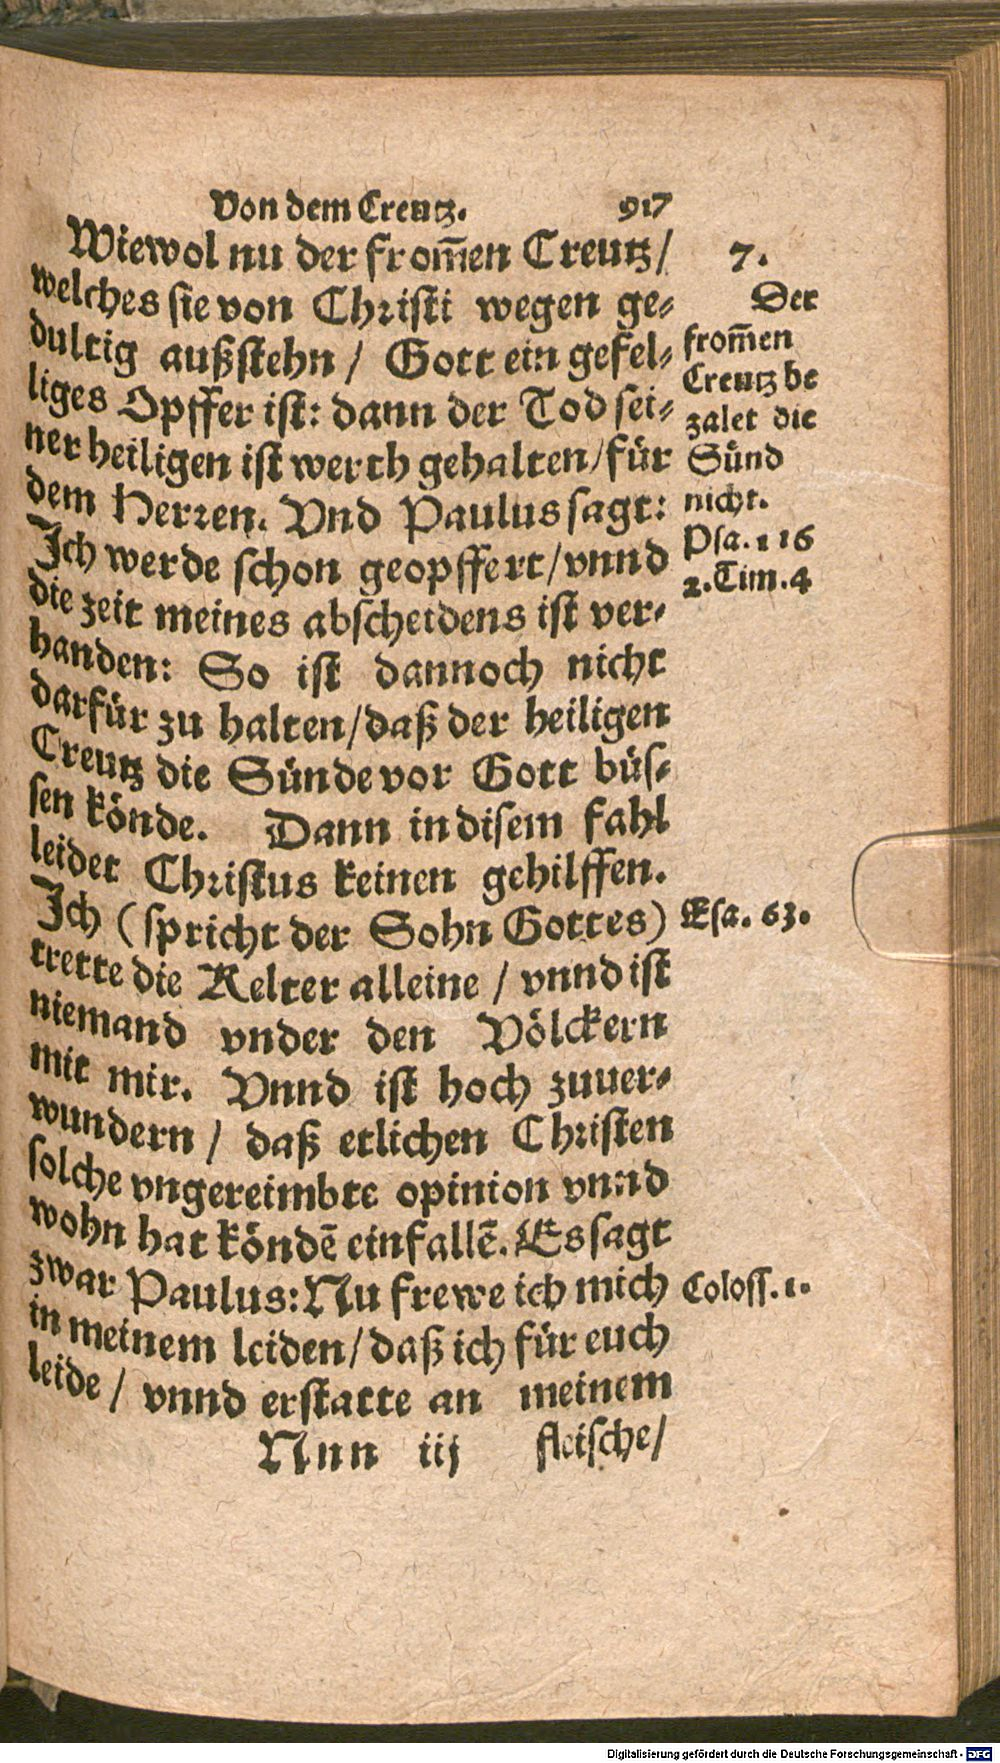 Von dem Creutz. 917
Wiewol nu der from̄en Creutz/
welches sie von Christi wegen ge⸗
dultig außstehn / Gott ein gefel⸗
liges Opffer ist: dann der Tod sei⸗
ner heiligen ist werth gehalten/für
dem Herren. Vnd Paulus sagt:
Ich werde schon geopffert/vnnd
die zeit meines abscheidens ist ver⸗
handen: So ist dannoch nicht
darfür zu halten/daß der heiligen
Creutz die Sünde vor Gott büs⸗
sen könde. Dann in disem fahl
leidet Christus keinen gehilffen.
Ich (spricht der Sohn Gottes)
trette die Kelter alleine / vnnd ist
niemand vnder den Völckern
mit mir. Vnnd ist hoch zuuer⸗
wundern / daß etlichen Christen
solche vngereimbte opinion vnnd
wohn hat köndē einfallē. Es sagt
zwar Paulus: Nu frewe ich mich
in meinem leiden/daß ich für euch
leide / vnnd erstatte an meinem
Nnn iij fleische/
7.
Der
from̄en
Creutz be
zalet die
Sünd
nicht.
Psa. 116
2. Tim. 4
Esa. 63.
Coloss. 1.
Digitalisierung gefördert durch die Deutsche Forschungsgemeinschaft - DFG